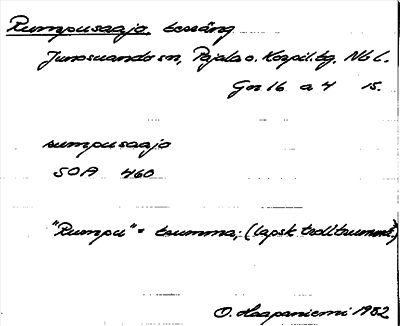 Rumpusaajo, tossäng
Junosuando sn, Pajala o. Korpil. tg. Nb l.
Gn 16 a 4 15.
rumpusaajo
SOA 460
"Rumpu" = trumma; (lapsk trolltrumma)
O. Haapaniemi 1982